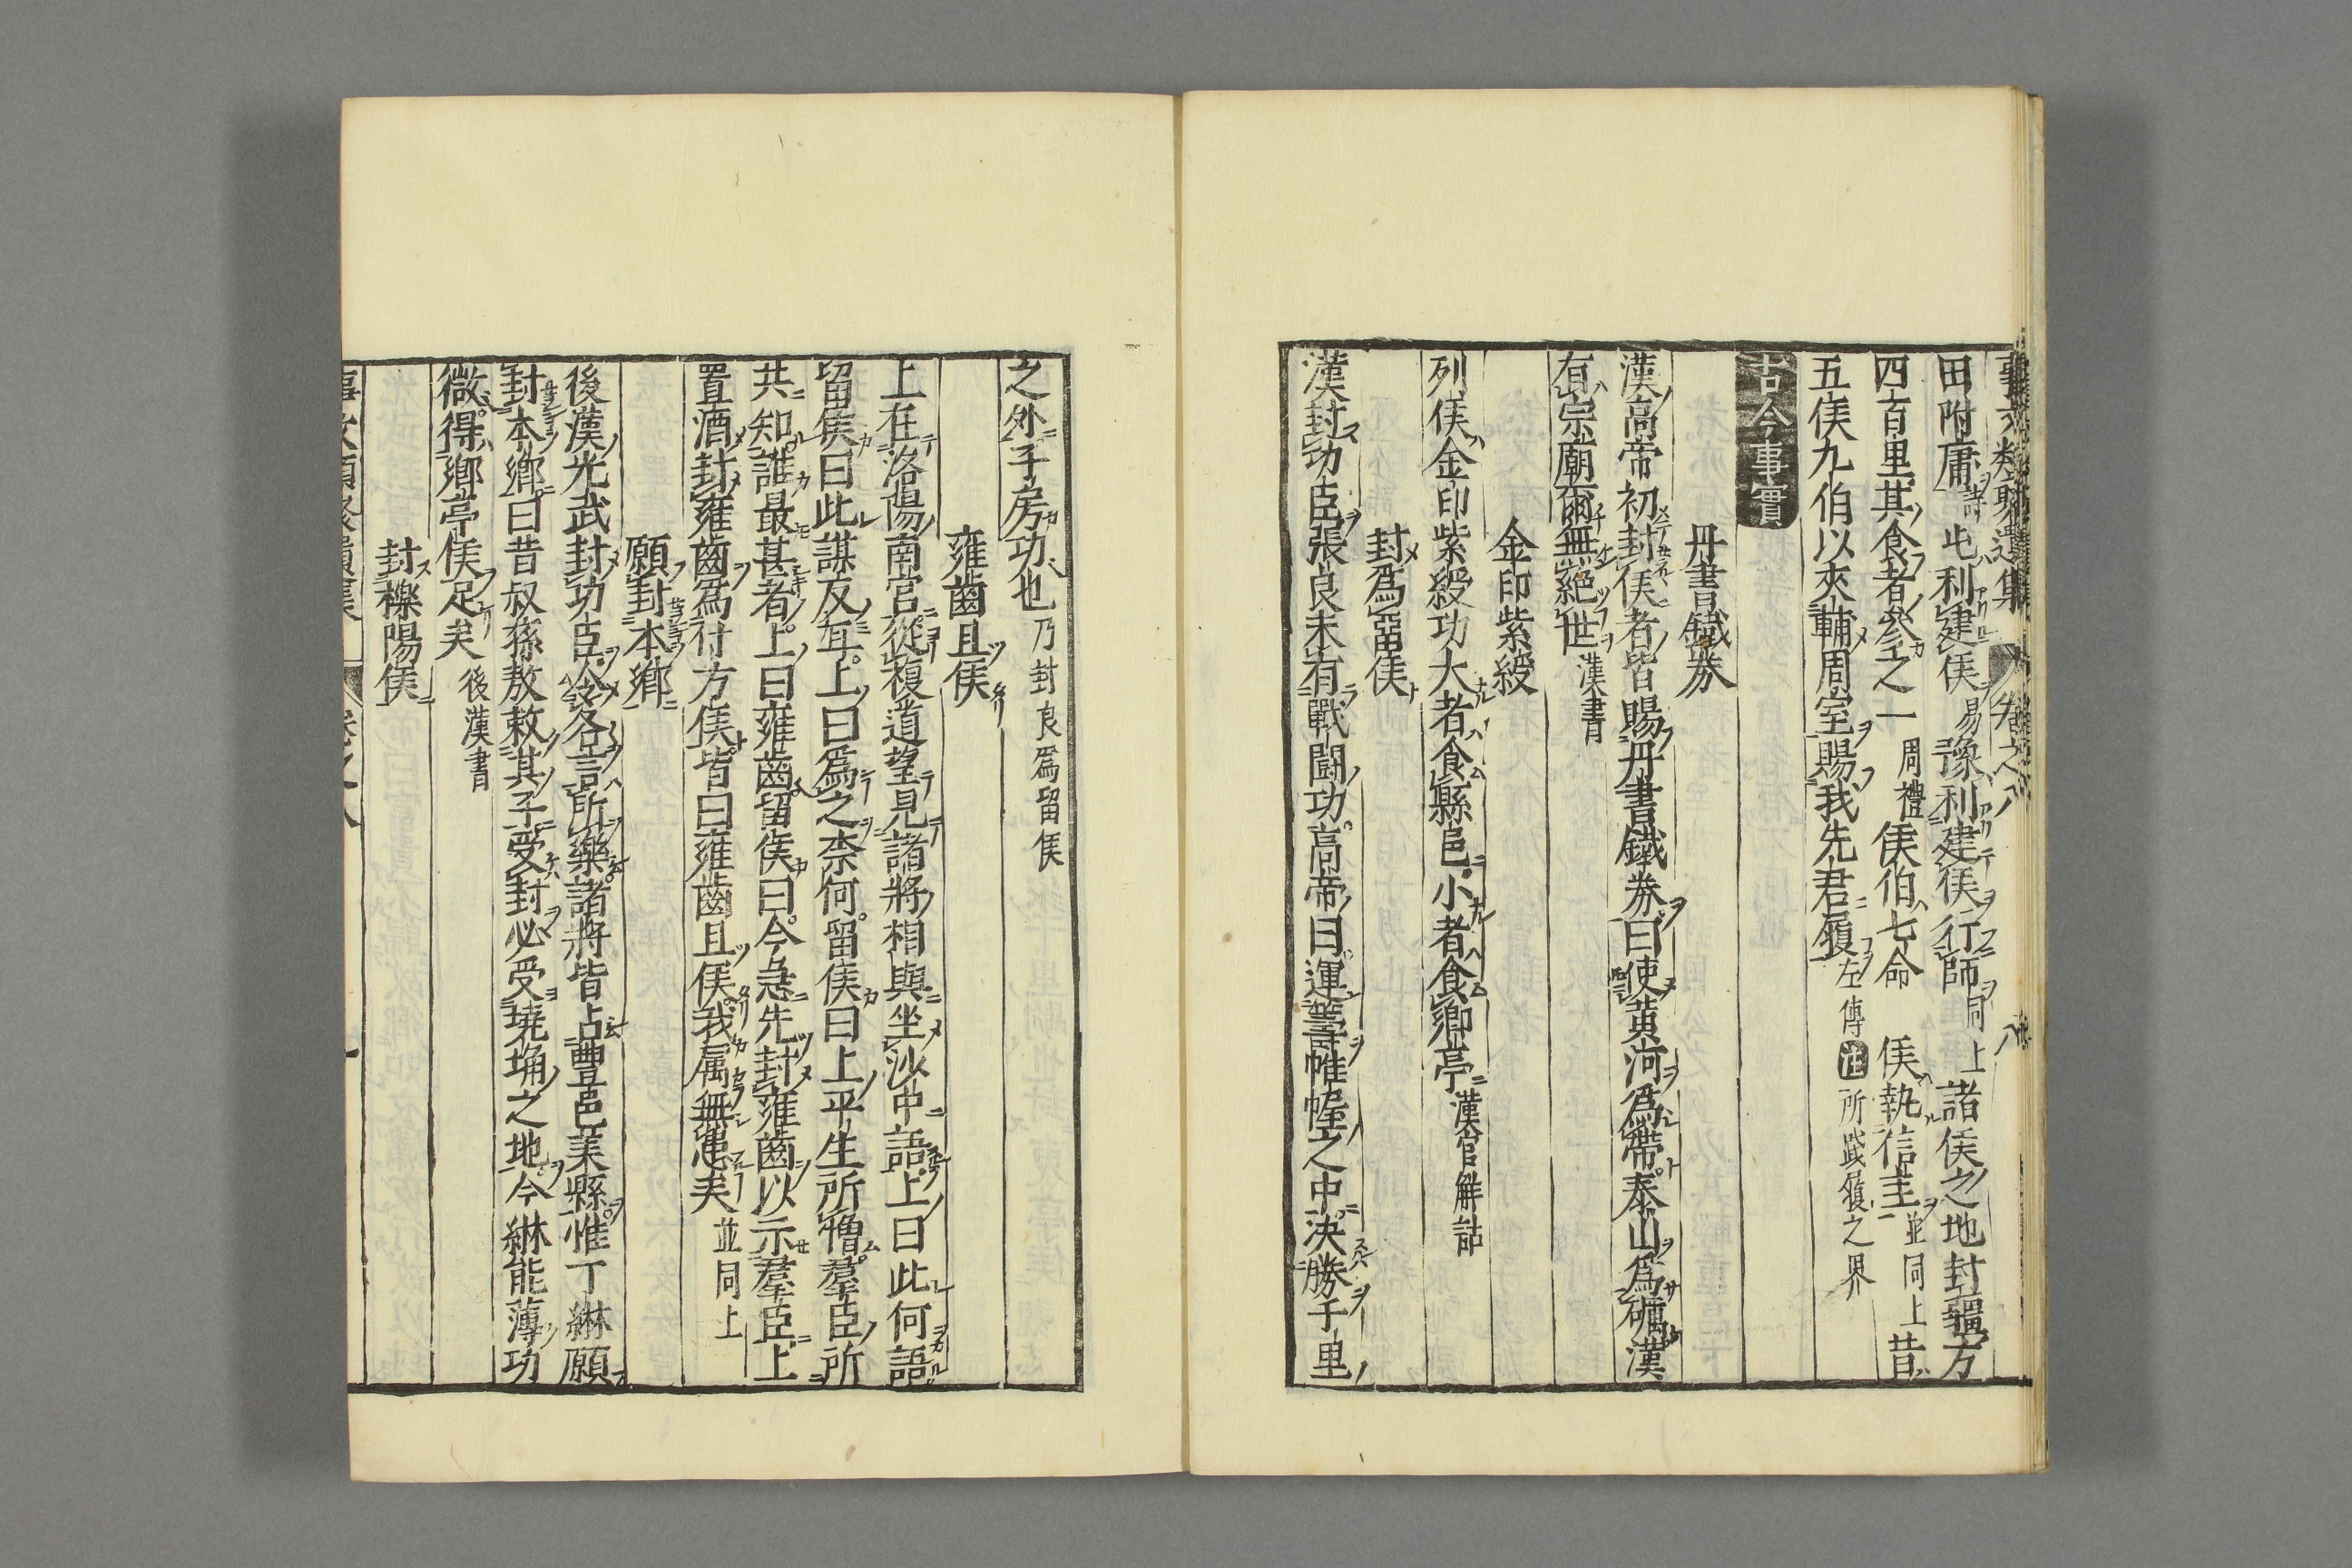 事文類聚遺集 卷之八
田附庸詩屯利建侯易豫利建侯行師同上諸侯之地封疆方
四百里其食者參之一周禮侯伯七命 侯執信圭並同上昔
五侯九伯以夾輔周室賜我先君履左傳注所踐履之界
古今事實
丹書鐵券
漢高帝初封侯者皆賜丹書鐵券曰使黃河為帶泰山為礪漢
有宗廟爾無絕世漢書
金印紫綬
列侯金印紫綬功大者食縣邑小者食鄉亭漢官解詁
封為留侯
漢封功臣張良未有戰鬪功高帝曰運籌帷幄之中決勝千里
之外子房功也乃封良為留侯
雍齒且侯
上在洛陽南宮從複道望見諸將相與坐沙中語上曰此何語
留侯曰此謀反耳上曰為之柰何留侯曰上平生所憎羣臣所
共知誰最甚者上曰雍齒留侯曰今急先封雍齒以示羣臣上
置酒封雍齒為什方侯皆曰雍齒且侯我属無患矣並同上
願封本鄉
後漢光武封功臣令各言所樂諸將皆占豊邑美縣惟丁綝願
封本鄉曰昔叔孫敖敕其子受封必受墝埆之地今綝能薄功
微得鄉亭侯足矣後漢書
封櫟陽侯
事文類聚遺集 卷之八